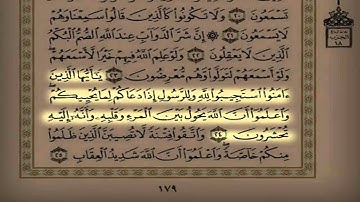 تَسْمَعُونَ ٢٠ وَلَا تَكُونُوا۟ كَٱلَّذِينَ قَالُوا۟ سَمِعْنَا وَهُمْ
لَا يَسْمَعُونَ ٢١ ۞ إِنَّ شَرَّ ٱلدَّوَآبِّ عِندَ ٱللَّهِ ٱلصُّمُّ ٱلْبُكْمُ
ٱلَّذِينَ لَا يَعْقِلُونَ ٢٢ وَلَوْ عَلِمَ ٱللَّهُ فِيهِمْ خَيْرًا لَّأَسْمَعَهُمْ ۖ
وَلَوْ أَسْمَعَهُمْ لَتَوَلَّوا۟ وَّهُم مُّعْرِضُونَ ٢٣ يَـٰٓأَيُّهَا ٱلَّذِينَ
ءَامَنُوا۟ ٱسْتَجِيبُوا۟ لِلَّهِ وَلِلرَّسُولِ إِذَا دَعَاكُمْ لِمَا يُحْيِيكُمْ ۖ
وَٱعْلَمُوٓا۟ أَنَّ ٱللَّهَ يَحُولُ بَيْنَ ٱلْمَرْءِ وَقَلْبِهِۦ وَأَنَّهُۥٓ إِلَيْهِ
تُحْشَرُونَ ٢٤ وَٱتَّقُوا۟ فِتْنَةً لَّا تُصِيبَنَّ ٱلَّذِينَ ظَلَمُوا۟
مِنكُمْ خَآصَّةً ۖ وَٱعْلَمُوٓا۟ أَنَّ ٱللَّهَ شَدِيدُ ٱلْعِقَابِ ٢٥
١٧٩